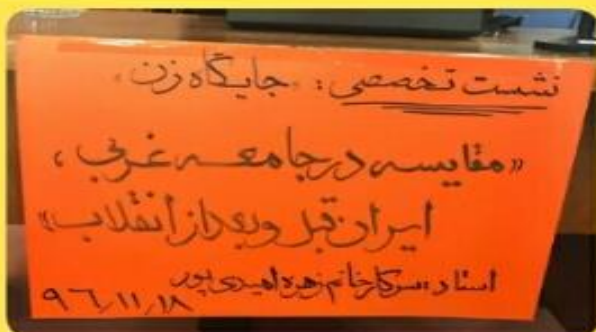 نشست تخصصی: «جایگاه زن»
«مقایسه در جامعه غربی،
ایران قبل و بعد از انقلاب»
استاد: سرکار خانم زهره امیدی پور
۹۶٫۱۱٫۱۸